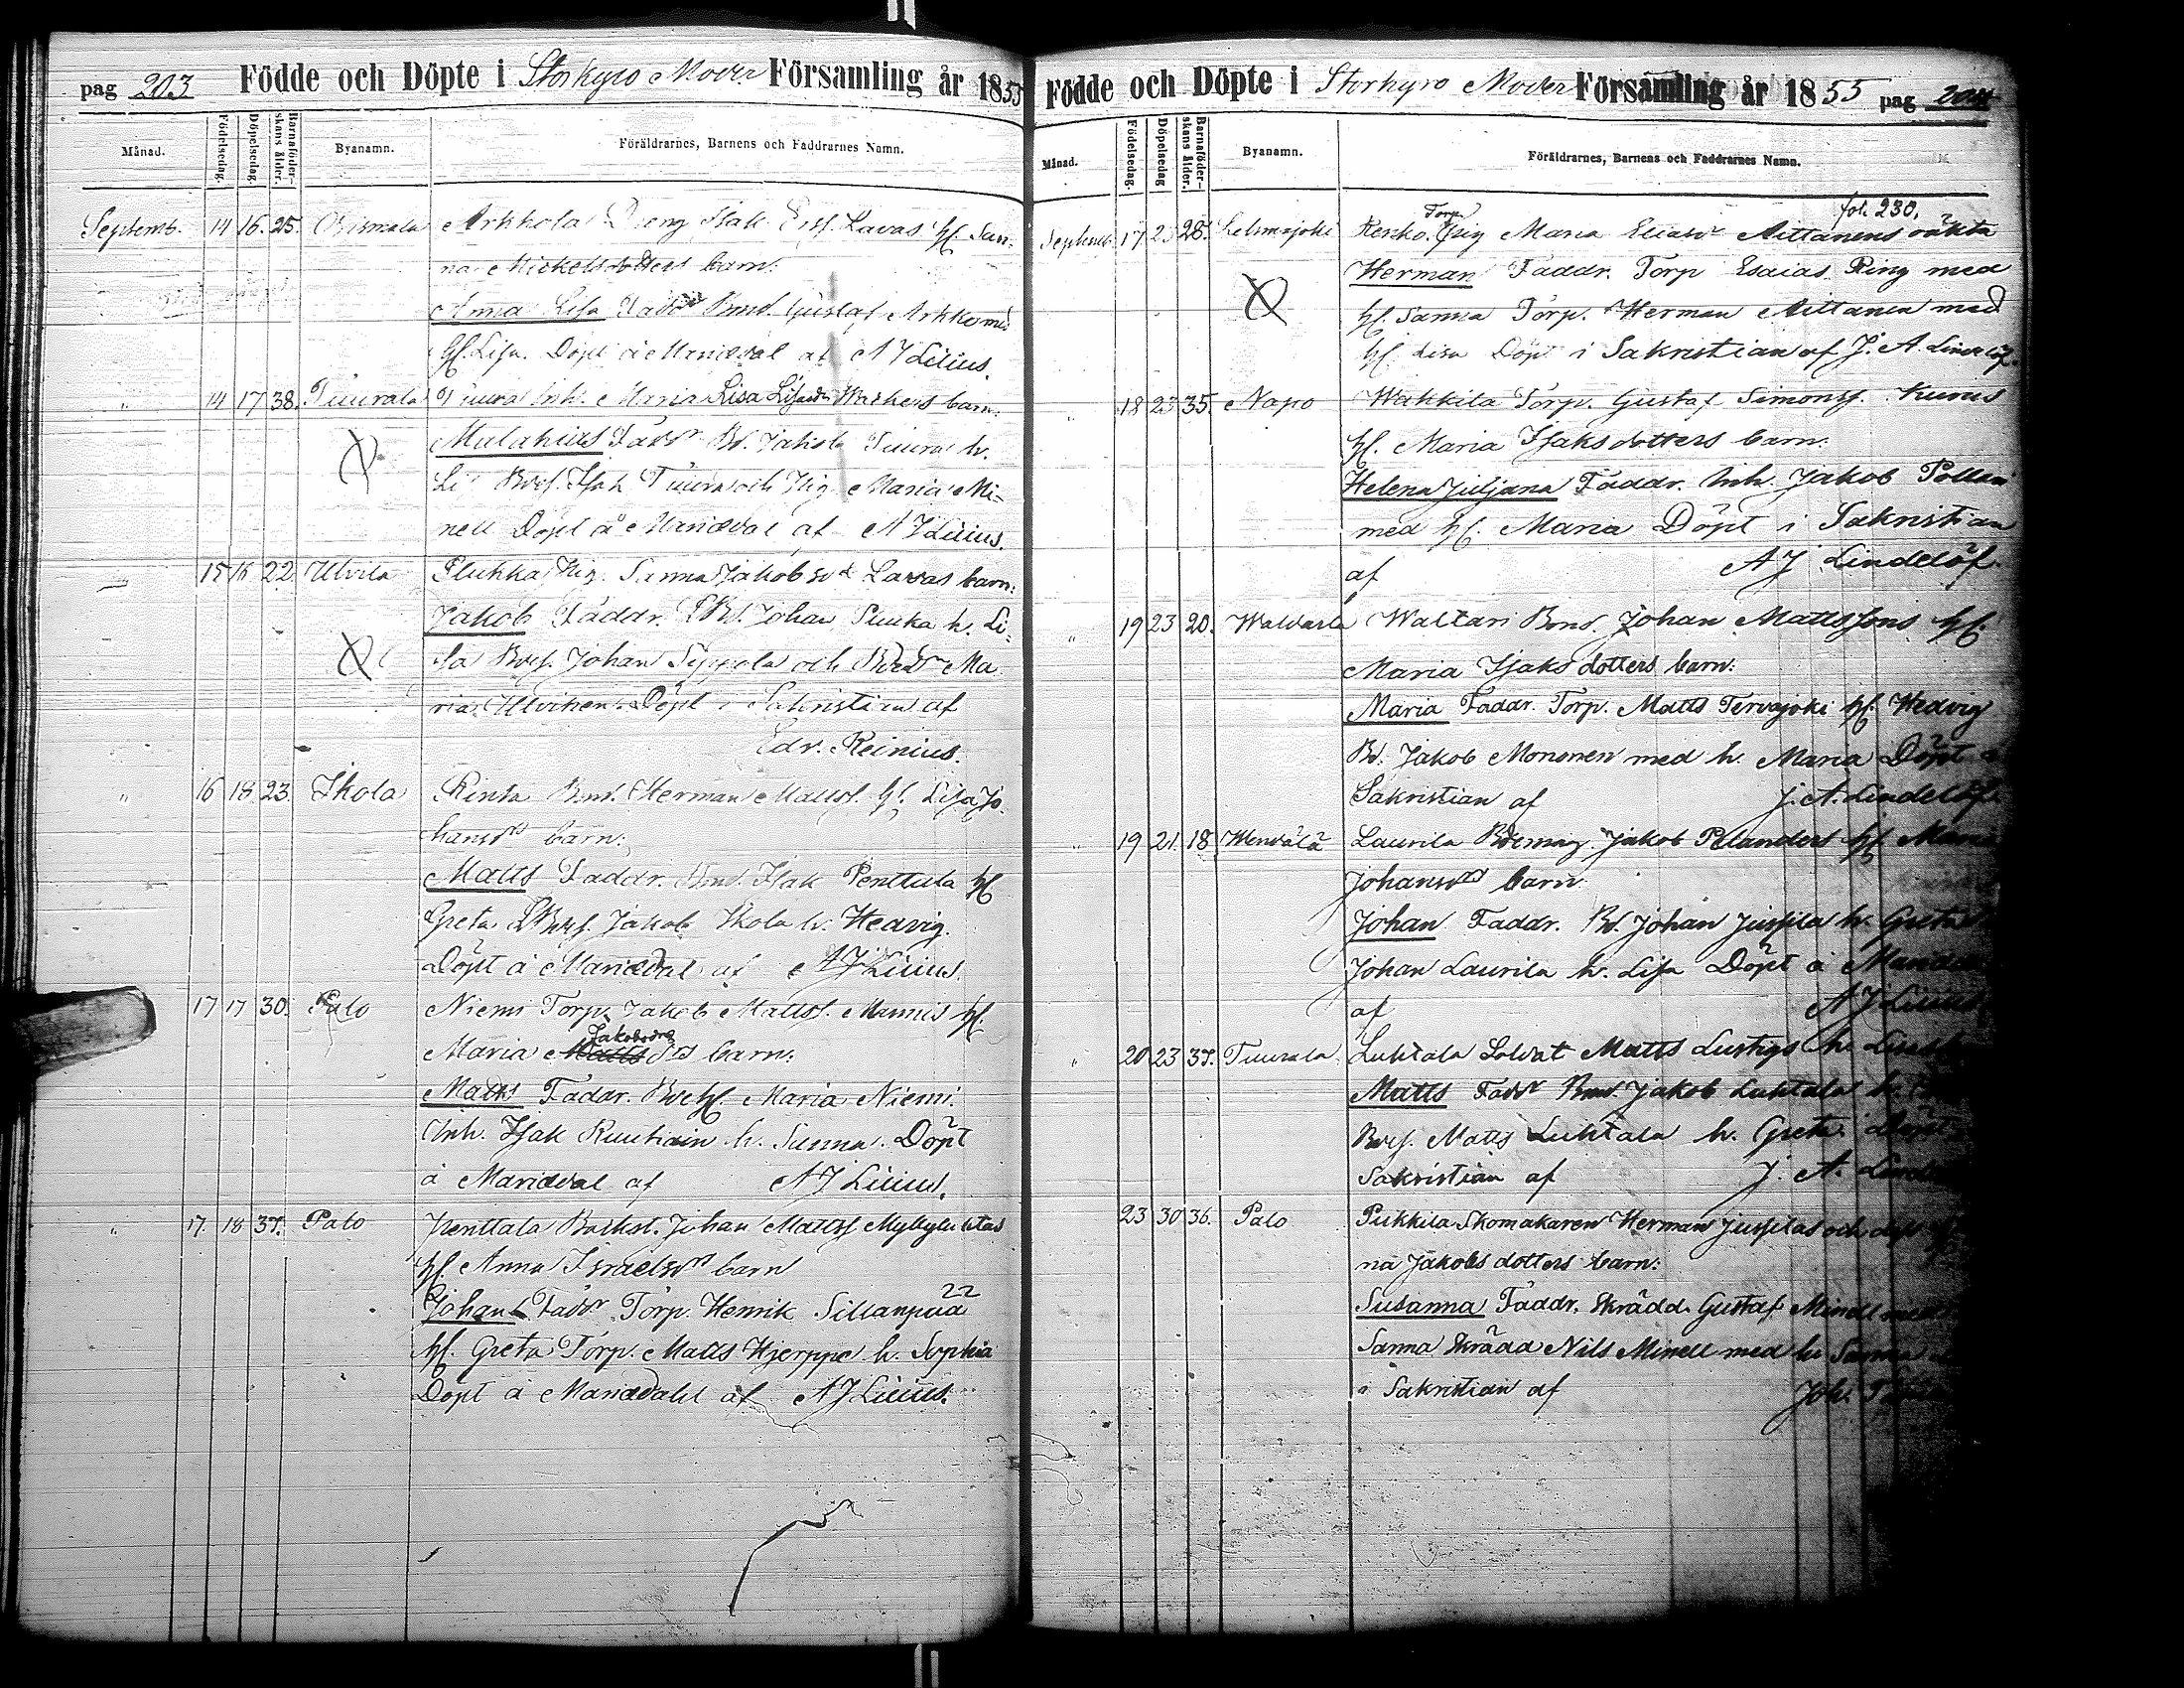 pag 203 Födde och Döpte i Storkyro Moder Församling år 1855
Månad. Födelsedag. Döpelsedag. Barnaföderskans ålder. Byanamn. Föräldrarnes, Barnens och Faddrarnes Namn.
Septemb. 14 16. 25. Orismala Arkkola Dreng Isak Ersf. Lavas hf. San-
na Mickelsdotters barn:
Anna Lisa Faddr Bond. Gustaf Arkko med
hf. Lisa. Döpt å Mariedal af A J Lilius.
" 14 17 38. Tuurala Tuura Inh. Maria Lisa barn:
Malakias Faddr Bd. Jakob Tuura h.
Li Bdsf. Isak Tuura och Pig. Maria Mi-
nell Döpt å Mariedal af A J Lilius.
" 15 16 22 Ulvila Pig. Sanna Jakobsd Lavas barn:
Jakob Faddr. Bd. Johan h. Li-
sa Bdsf. Johan Seppola och Ma
ria Ulvinen. Döpt i Sakristian af
Edv. Reinius.
" 16 18 23. Ikola Rinta Bond. Herman Mattsf. hf. Lisa Jo-
hansdrs barn:
Matts Faddr. Bond. Isak Penttala hf
Greta Bdsf. Jakob Ikola h. Hedvig.
Döpt å Mariedal af A J Lilius.
17 17 30. Palo Niemi Torp. Jakob Mattsf. Mannis hf.
Jakobsdrs
Maria Matts drs barn:
Matts Faddr. Bdehf. Maria Niemi.
Inh. Isak Ruutiain h. Sanna. Döpt
å Mariedal af A J Lilius.
" 17. 18 37. Palo Penttala Johan Mattsf Myllyluhtas
hf. Anna Israelsdrs barn
Johan Faddr Torp. Henrik Sillanpää
hf. Greta Torp. Matts Hjerppe h. Sophia
Döpt å Mariedahl af A J Lilius.
Födde och Döpte i Storkyro Moder Församling år 1855 pag 204
Månad. Födelsedag. Döpelsedag Barnaföderskans ålder. Byanamn. Föräldrarnes, Barnens och Faddrarnes Namn.
fol. 230.
Torp.
Septemb. 17 23 28. Lehmäjoki Renko. Pig Maria Eliasdr Aittanens oäkta
Herman Faddr. Torp Esaias Ring med
hf. Sanna Torp. Herman Aittanen med
hf. Lisa Döpt i Sakristian af J. A. Lindelöf.
" 18 23 35. Napo Wakkila Torp. Gustaf Simonsf. Kurus
hf. Maria Isaksdotters barn:
Helena Juljana Faddr. Inh. Jakob Pollari
med hf. Maria Döpt i Sakristian
af A J Lindelöf.
" 19 23 20. Waldarla Waltari Bond. Johan Mattssons hf.
Maria Isaksdotters barn:
Maria Faddr. Torp. Matts Tervajoki hf. Hedvig
Bd. Jakob Mononen med h. Maria Döpt i
Sakristian af J. A. Lindelöf
" 19 21. 18 Wendälä Laurila Bdemåg. Jakob Pelanders hf. Maria
Johansdrs barn:
Johan Faddr. Bd. Johan Jussila h. Greta
Johan Laurila h. Lisa Döpt å
af A J Lilius
" 20 23 37. Tuurala. Luhtala Soldat Matts Lustigs h.
Matts Faddr Bond. Jakob Luhtala h.
Bdsf. Matts Luhtala h. Greta
Sakristian af J. A.
23 30 36. Palo Pukkila Skomakaren Herman Jussilas och
na Jakobsdotters barn:
Susanna Faddr. Skrädd. Gustaf Minell med
Sanna Skrädd Nils Minell med h. Sanna
i Sakristian af Joh.